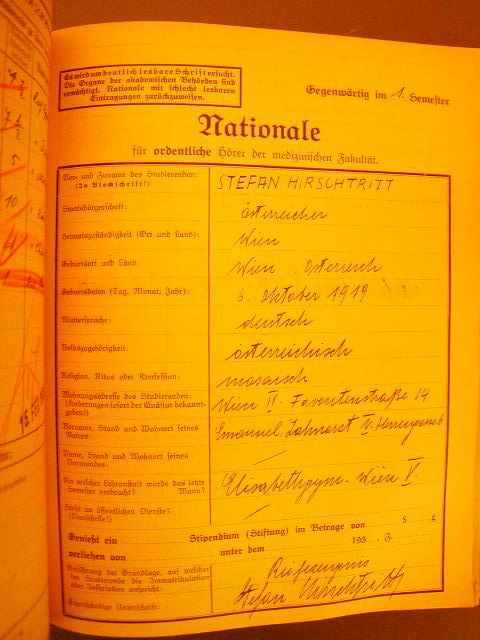 Es wird um deutlich lesbare Schrift ersucht.
Die Organe der akademischen Behörden sind
ermächtigt, Nationale mit schlecht lesbaren
Eintragungen zurückzuweisen.
Gegenwärtig im 1. Semester
Nationale
für ordentliche Hörer der medizinischen Fakultät.
Vor- und Zuname des Studierenden:
(In Blockschrift!)
STEFAN HIRSCHTRITT
Staatsbürgerschaft:
österreicher
Heimatszuständigkeit (Ort und Land):
Wien
Geburtsort und Land:
Wien, Österreich
Geburtsdaten (Tag, Monat, Jahr):
6. Oktober 1919
Muttersprache:
deutsch
Volkszugehörigkeit:
österreichisch
Religion, Ritus oder Konfession:
mosaisch
Wohnungsadresse des Studierenden:
(Änderungen sofort der Quästur bekannt-
geben!)
Wien IV. Favoritenstraße 14
Vorname, Stand und Wohnort seines
Vaters:
Emanuel, Zahnarzt IV. 6
Name, Stand und Wohnort seines
Vormundes:
An welcher Lehranstalt wurde das letzte
Semester verbracht? Wann?
Elisabethgym. Wien V.
Steht im öffentlichen Dienste?
(Dienststelle?)
Genießt ein Stipendium (Stiftung) im Betrage von S g
verliehen von unter dem 193 , Z.
Anführung der Grundlage, auf welcher
der Studierende die Immatrikulation
oder Inskription anspricht:
Reifezeugnis
Eigenhändige Unterschrift:
Stefan Hirschtritt